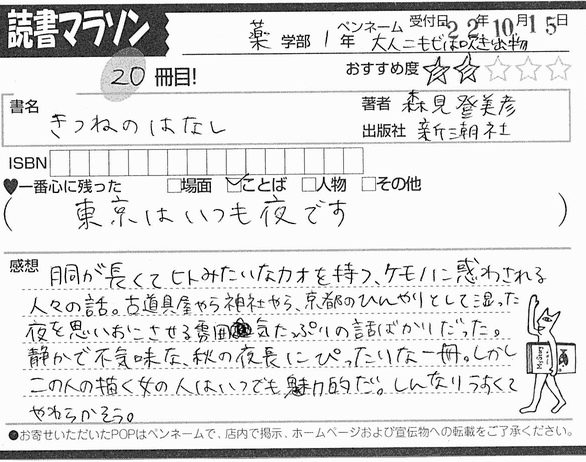 読書マラソン
薬 学部 1 年 ペンネーム 大人ニモビは吹き出物 受付日 22年10月15日
20 冊目! おすすめ度
書名 きつねのはなし
著者 森見登美彦
出版社 新潮社
ISBN
♥一番心に残った □場面 ☑ことば □人物 □その他
( 東京はいつも夜です )
感想 胴が長くてヒトみたいなカオを持つ、ケモノに惑わされる
人々の話。古道具屋やら神社やら、京都のひんやりとして湿った
夜を思いおこさせる雰囲気たっぷりの話ばかりだった。
静かで不気味な、秋の夜長にぴったりな一冊。しかし
この人の描く女の人はいつでも魅力的だ。しんなりうすくて
やわらかそう。
●お寄せいただいたPOPはペンネームで、店内で掲示、ホームページおよび宣伝物への転載をご了承ください。